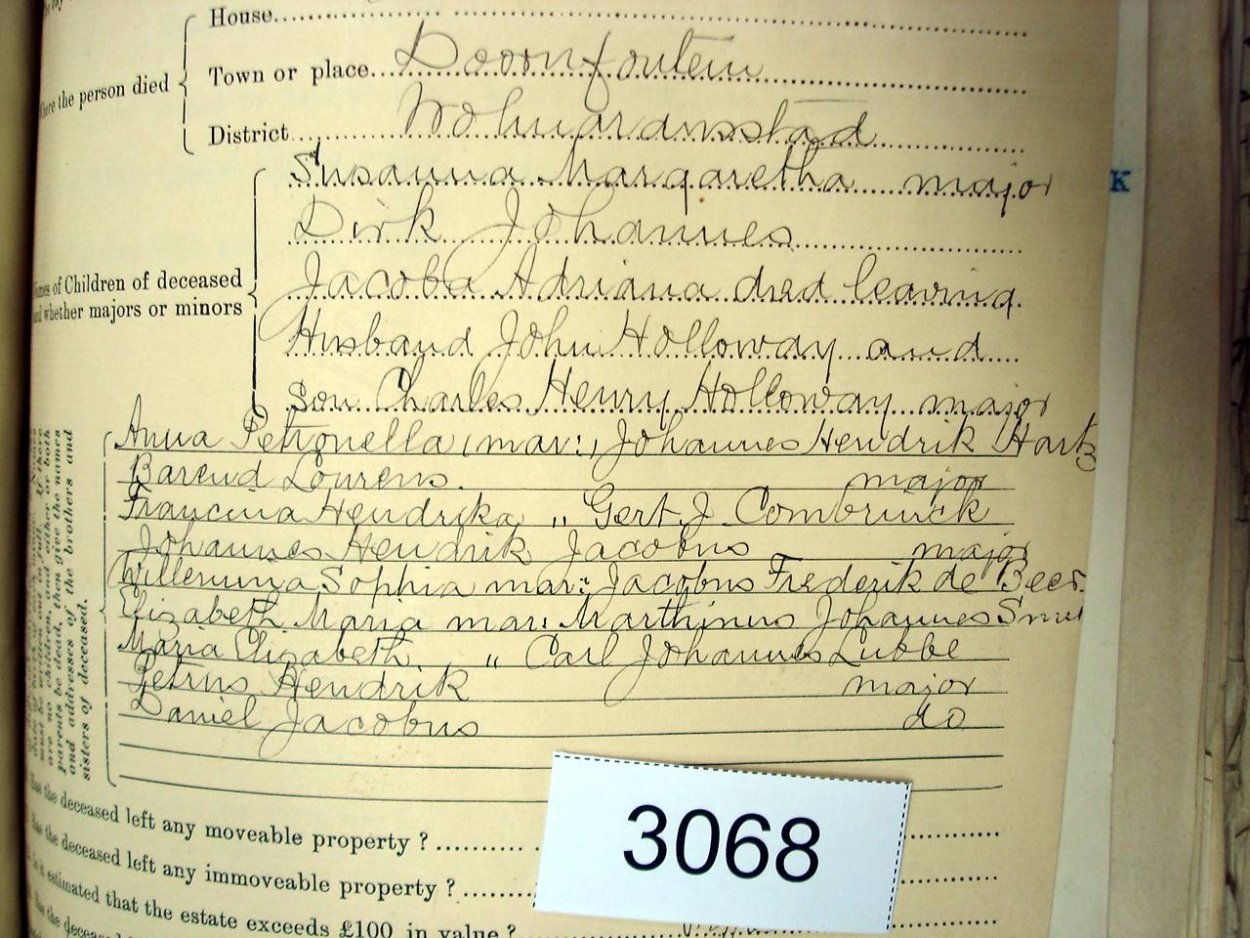 House
Where the person died
Town or place Doornfontein
District Wolmaransstad
Susanna Margaretha major
Dirk Johannes
Names of Children of deceased
and whether majors or minors
Jacoba Adriana died leaving
Husband John Holloway and
Son Charles Henry Holloway major
Anna Petronella (mar:) Johannes Hendrik Hartz
Barend Lourens. major
Francina Hendrika " Gert J. Combrinck
Johannes Hendrik Jacobus major
Willemina Sophia mar: Jacobus Frederik de Beer.
Elizabeth Maria mar: Marthinus Johannes Smit
Maria Elizabeth " Carl Johannes Lubbe
Petrus Hendrik major
Daniel Jacobus do
are no children, and either or both
parents be dead, then give the names
and addresses of the brothers and
sisters of deceased.
Has the deceased left any moveable property ?
Has the deceased left any immoveable property ?
Is it estimated that the estate exceeds £100 in value ?
Has the deceased
3068
K